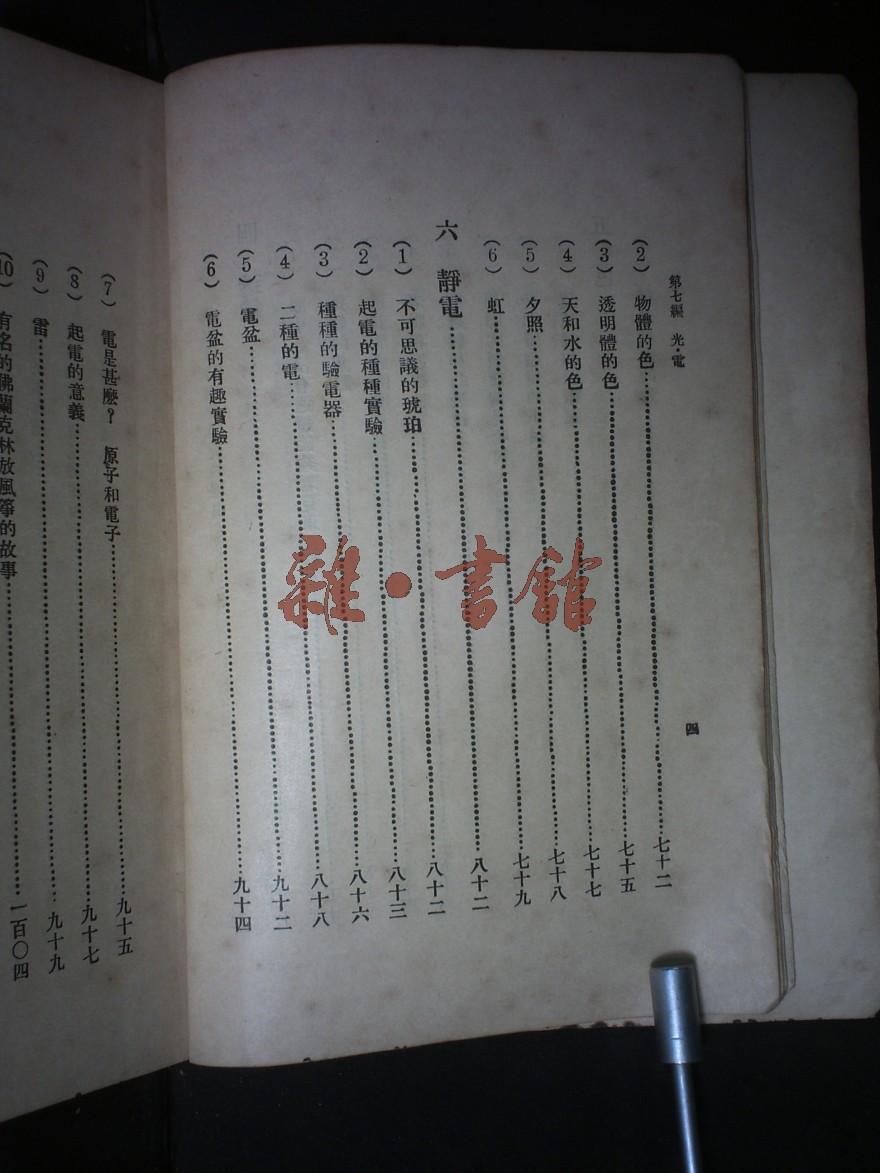 第七編 光·電
四
(2) 物體的色……七十二
(3) 透明體的色……七十五
(4) 天和水的色……七十七
(5) 夕照……七十八
(6) 虹……七十九
六 靜電……八十二
(1) 不可思議的琥珀……八十二
(2) 起電的種種實驗……八十三
(3) 種種的驗電器……八十六
(4) 二種的電……八十八
(5) 電盆……九十二
(6) 電盆的有趣實驗……九十四
(7) 電是甚麼？ 原子和電子……九十五
(8) 起電的意義……九十七
(9) 雷……九十九
(10) 有名的佛蘭克林放風箏的故事……一百〇四
雜·書館